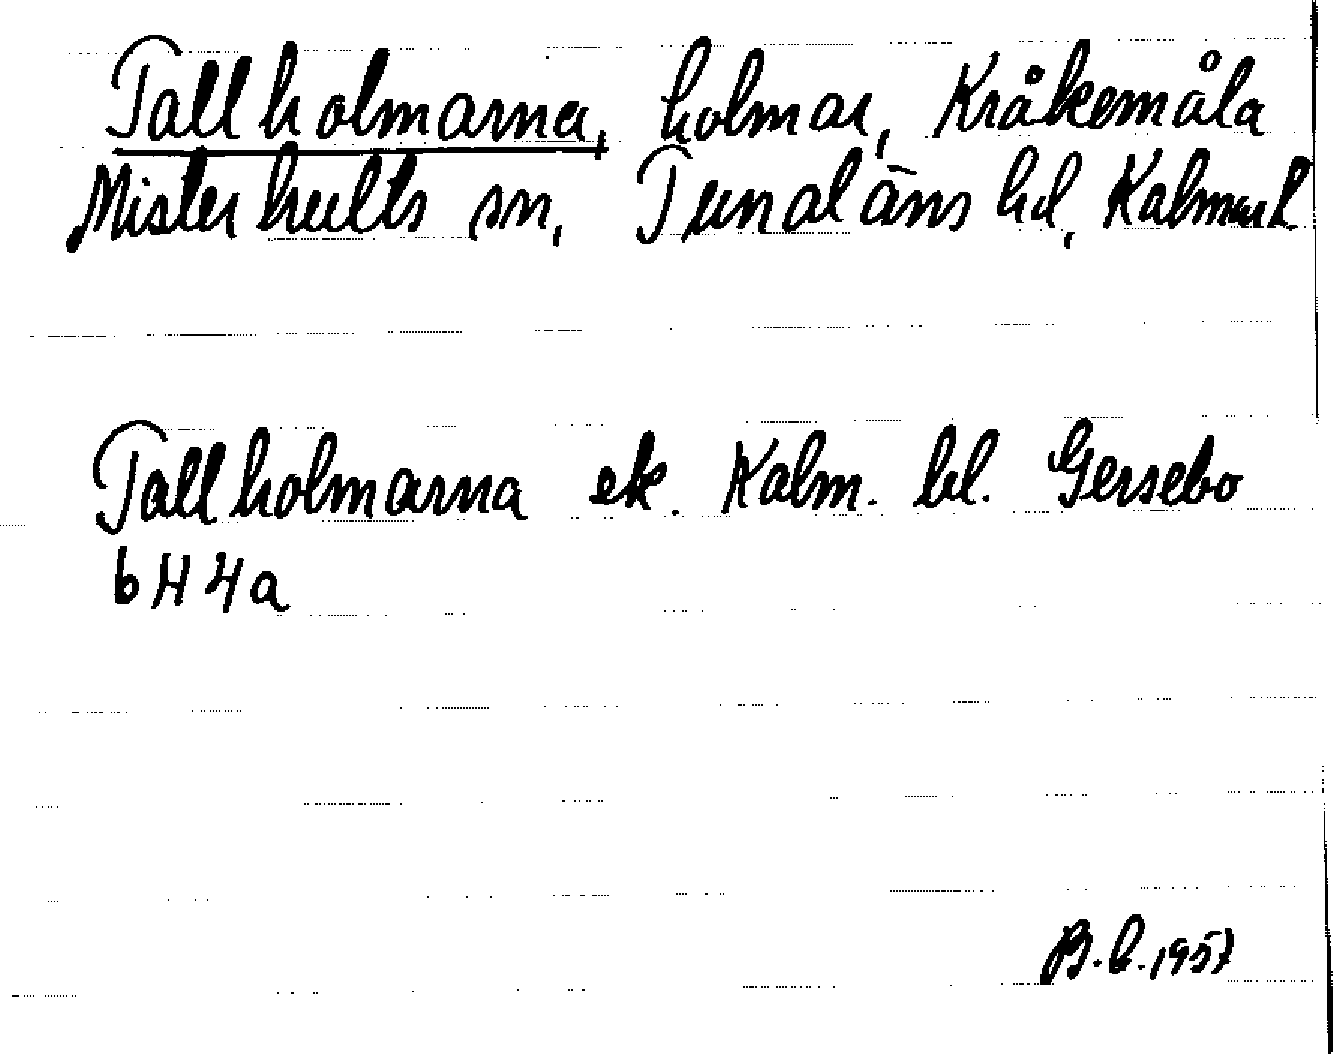 Tallholmarna, holmar, Kråkemåla
Misterhults sn, Tunaläns hd, Kalmar l.
Tallholmarna ek. Kalm. bl. Gersebo
6H4a
B.L. 1957